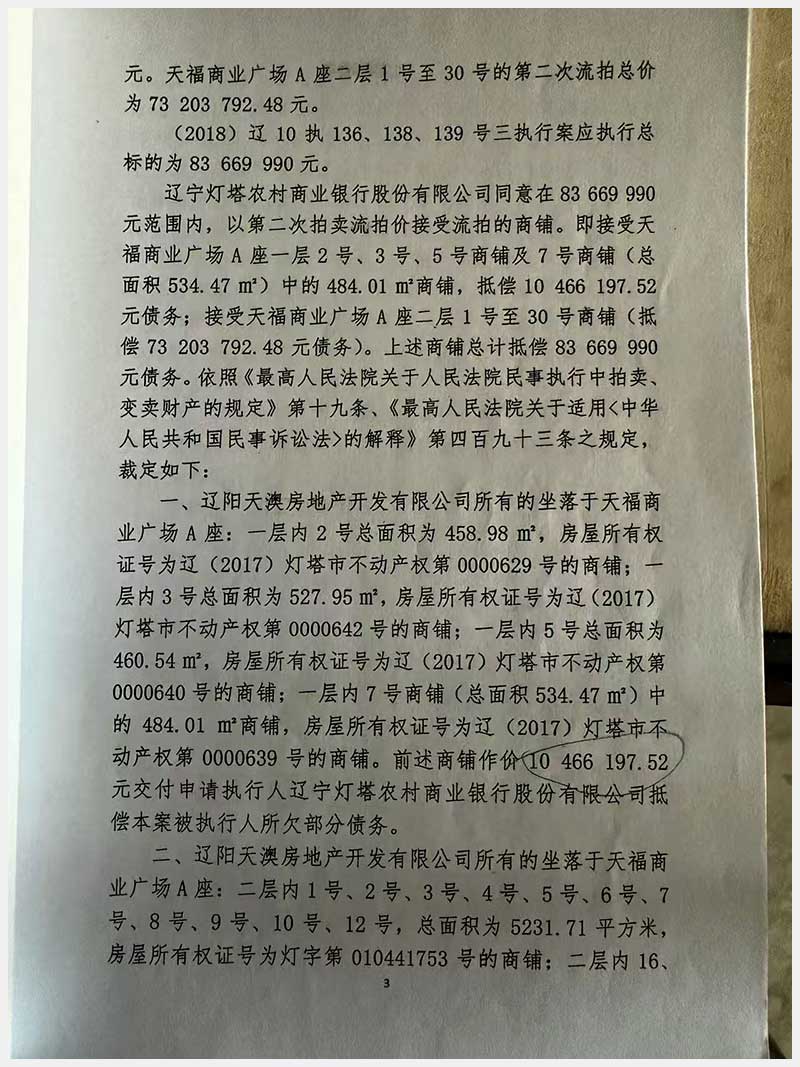 元。天福商业广场 A 座二层 1 号至 30 号的第二次流拍总价
为 73 203 792.48 元。
（2018）辽 10 执 136、138、139 号三执行案应执行总
标的为 83 669 990 元。
辽宁灯塔农村商业银行股份有限公司同意在 83 669 990
元范围内，以第二次拍卖流拍价接受流拍的商铺。即接受天
福商业广场 A 座一层 2 号、3 号、5 号商铺及 7 号商铺（总
面积 534.47 ㎡）中的 484.01 ㎡商铺，抵偿 10 466 197.52
元债务；接受天福商业广场 A 座二层 1 号至 30 号商铺（抵
偿 73 203 792.48 元债务）。上述商铺总计抵偿 83 669 990
元债务。依照《最高人民法院关于人民法院民事执行中拍卖、
变卖财产的规定》第十九条、《最高人民法院关于适用<中华
人民共和国民事诉讼法>的解释》第四百九十三条之规定，
裁定如下：
一、辽阳天澳房地产开发有限公司所有的坐落于天福商
业广场 A 座：一层内 2 号总面积为 458.98 ㎡，房屋所有权
证号为辽（2017）灯塔市不动产权第 0000629 号的商铺；一
层内 3 号总面积为 527.95 ㎡，房屋所有权证号为辽（2017）
灯塔市不动产权第 0000642 号的商铺；一层内 5 号总面积为
460.54 ㎡，房屋所有权证号为辽（2017）灯塔市不动产权第
0000640 号的商铺；一层内 7 号商铺（总面积 534.47 ㎡）中
的 484.01 ㎡商铺，房屋所有权证号为辽（2017）灯塔市不
动产权第 0000639 号的商铺。前述商铺作价 10 466 197.52
元交付申请执行人辽宁灯塔农村商业银行股份有限公司抵
偿本案被执行人所欠部分债务。
二、辽阳天澳房地产开发有限公司所有的坐落于天福商
业广场 A 座：二层内 1 号、2 号、3 号、4 号、5 号、6 号、7
号、8 号、9 号、10 号、12 号，总面积为 5231.71 平方米，
房屋所有权证号为灯字第 010441753 号的商铺；二层内 16、
3